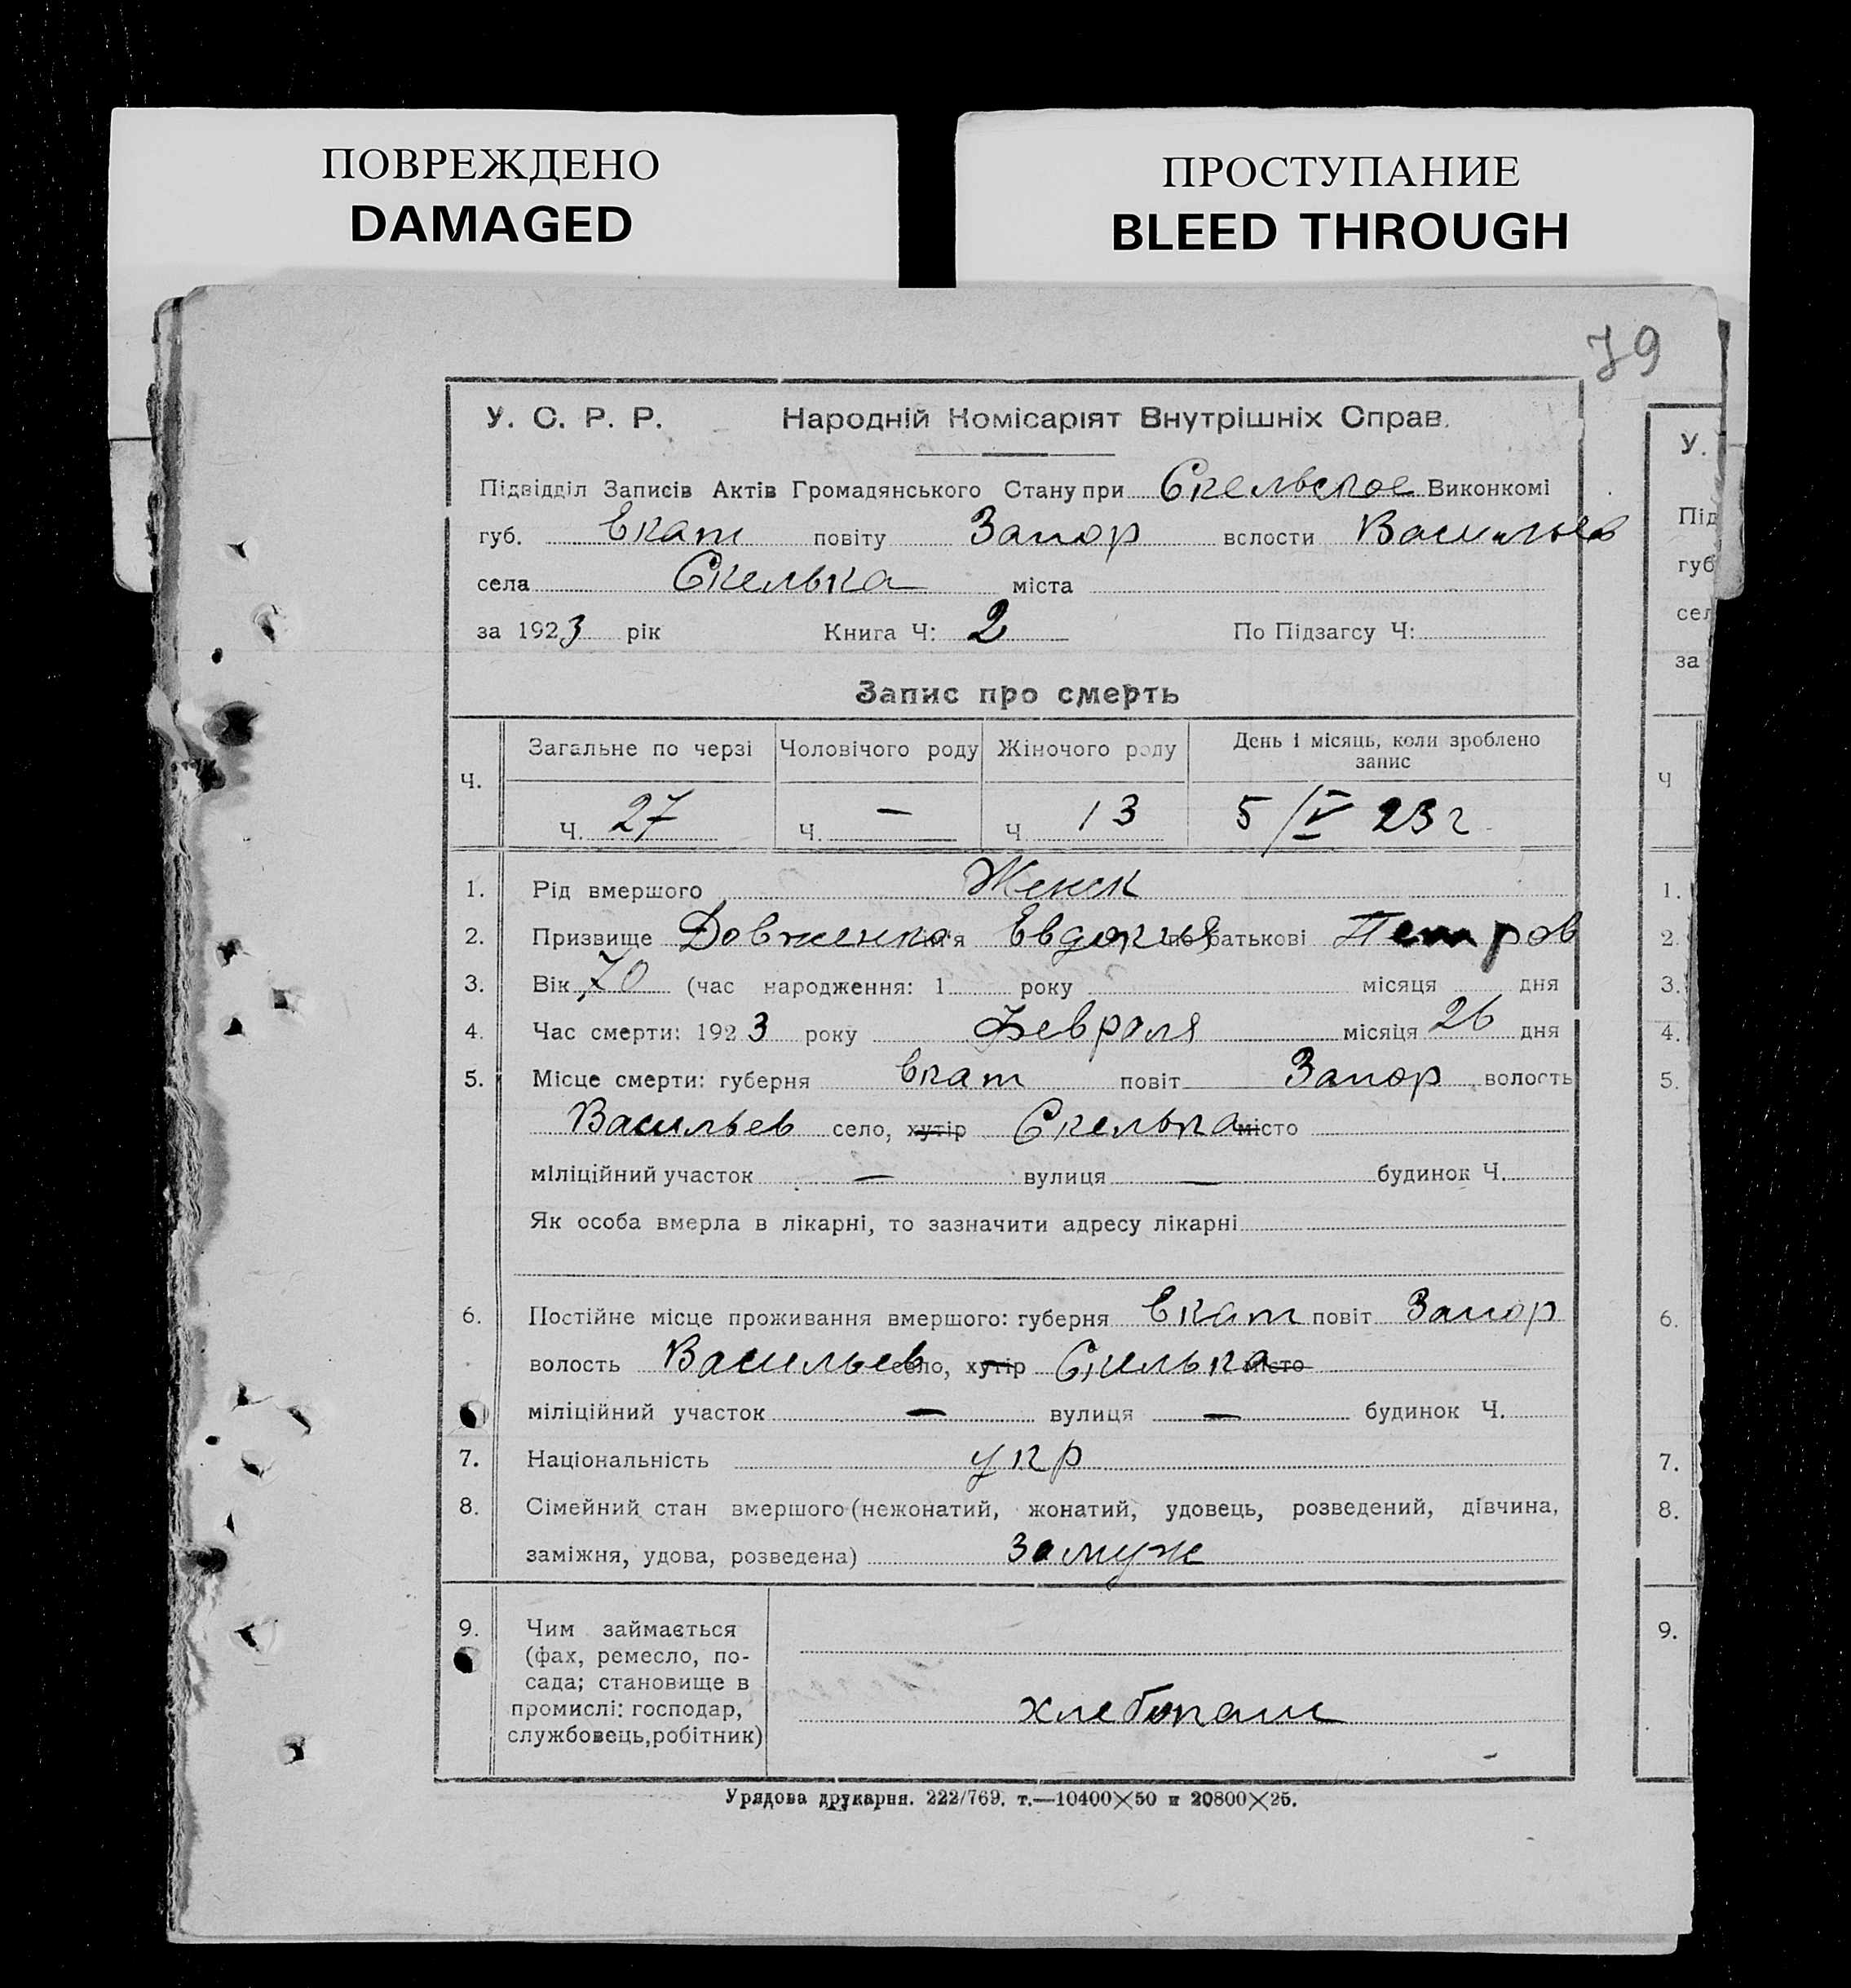 ПОВРЕЖДЕНО
DAMAGED
ПРОСТУПАНИЕ
BLEED THROUGH
79
У. С. Р. Р. Народній Комісаріят Внутрішніх Справ.
Підвідділ Записів Актів Громадянського Стану при Скельское Виконкомі
губ. Екат повіту Запор волости Васильев
села Скелька міста
за 1923 рік Книга Ч: 2 По Підзагсу Ч:
Запис про смерть
Ч. Загальне по черзі Чоловічого роду Жіночого роду День і місяць, коли зроблено запис
Ч. 27 Ч. — Ч 13 5/V 23 г
1. Рід вмершого Женск
2. Призвище Довженко ім'я Евдокия по батькові Петров
3. Вік 70 (час народження: 1 року місяця дня
4. Час смерти: 1923 року Февраля місяця 26 дня
5. Місце смерти: губерня Екат повіт Запор волость
Васильев село, хутір Скелька місто
міліційний участок — вулиця — будинок Ч.
Як особа вмерла в лікарні, то зазначити адресу лікарні
6. Постійне місце проживання вмершого: губерня Екат повіт Запор
волость Васильев село, хутір Скелька місто
міліційний участок — вулиця — будинок Ч.
7. Національність укр
8. Сімейний стан вмершого (нежонатий, жонатий, удовець, розведений, дівчина,
заміжня, удова, розведена) Замуж
9. Чим займається
(фах, ремесло, по-
сада; становище в
промислі: господар,
службовець, робітник)
хлебопаш
Урядова друкарня. 222/769. т.—10400×50 и 20800×25.
У.
Під
губ
сел
за
Ч
1.
2.
3.
4.
5.
6.
7.
8.
9.